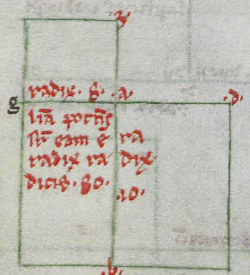 g
radix. 8. a.
d.
lia potens
sup eam e
radix ra
dicis. 80.
ra
dix
10.
b